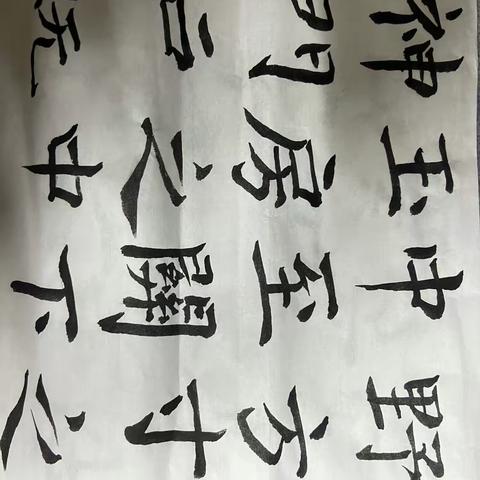 野方寸之
中至關下
玉房之中
神門戶既